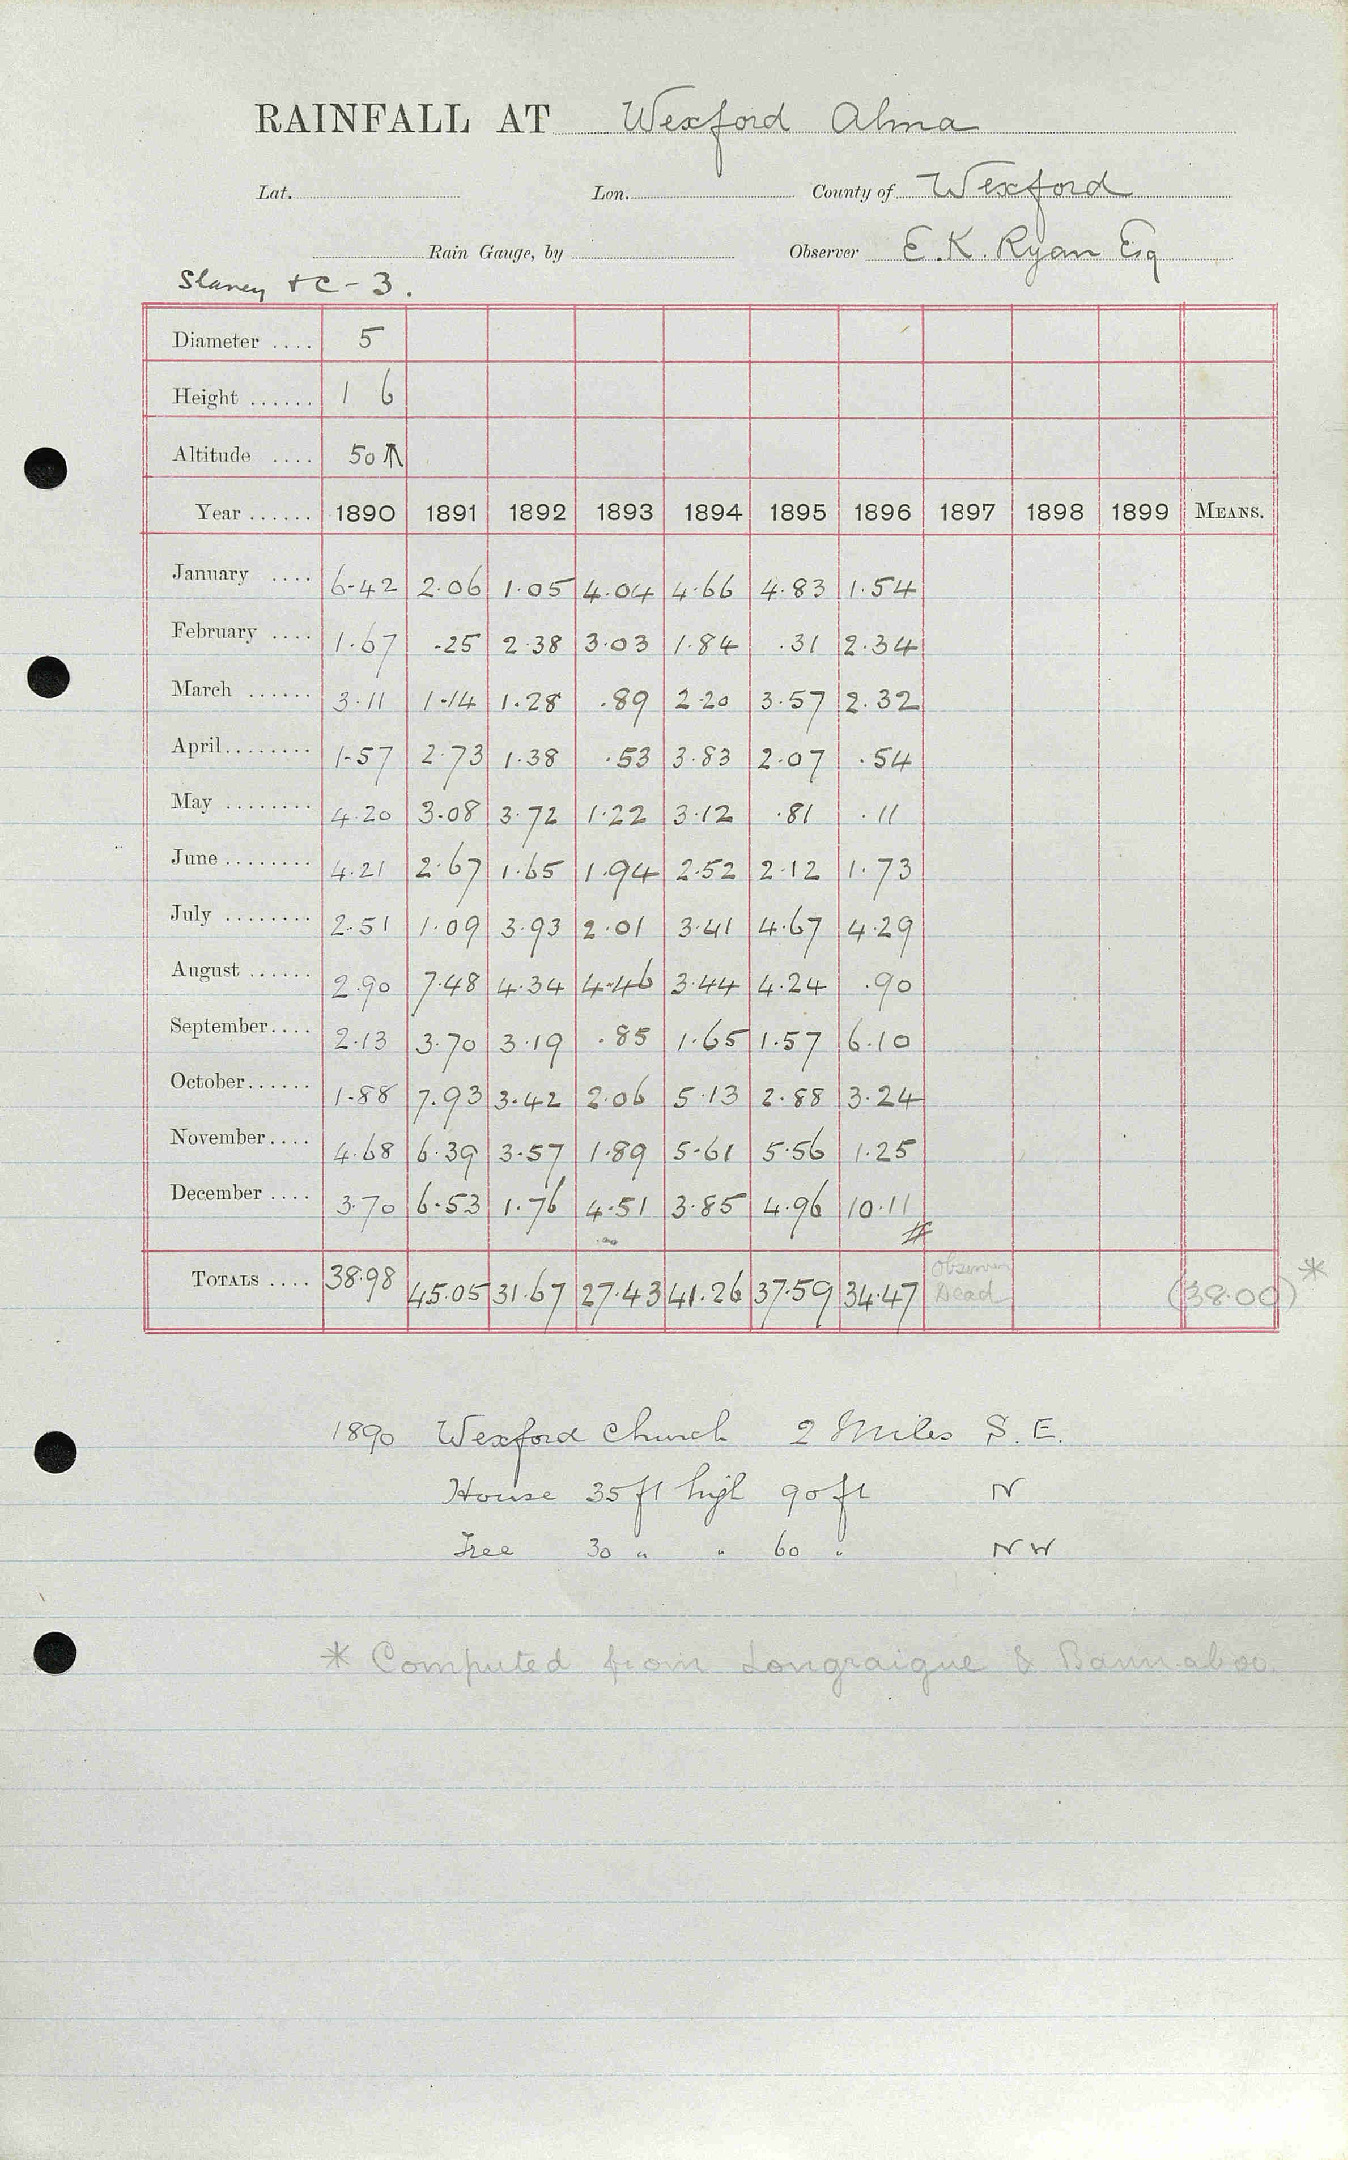 RAINFALL AT Wexford Alma
Lat. Lon. County of Wexford
Rain Gauge, by Observer E. K. Ryan Esq
Slaney + C - 3.
Diameter .... 5
Height ...... 1 6
Altitude .... 50 ↑
Year ...... 1890 1891 1892 1893 1894 1895 1896 1897 1898 1899 MEANS.
January .... 6.42 2.06 1.05 4.04 4.66 4.83 1.54
February .... 1.67 .25 2.38 3.03 1.84 .31 2.34
March ...... 3.11 1.14 1.28 .89 2.20 3.57 2.32
April........ 1.57 2.73 1.38 .53 3.83 2.07 .54
May ........ 4.20 3.08 3.72 1.22 3.12 .81 .11
June........ 4.21 2.67 1.65 1.94 2.52 2.12 1.73
July ........ 2.51 1.09 3.93 2.01 3.41 4.67 4.29
August ...... 2.90 7.48 4.34 4.46 3.44 4.24 .90
September.... 2.13 3.70 3.19 .85 1.65 1.57 6.10
October...... 1.88 7.93 3.42 2.06 5.13 2.88 3.24
November.... 4.68 6.39 3.57 1.89 5.61 5.56 1.25
December .... 3.70 6.53 1.76 4.51 3.85 4.96 10.11
#
TOTALS .... 38.98 45.05 31.67 27.43 41.26 37.59 34.47 Observer Dead (38.00) *
1890 Wexford Church 2 Miles S. E.
House 35 ft high 90 ft N
Tree 30 " " 60 " NW
* Computed from Longraigue & Bannaboo.